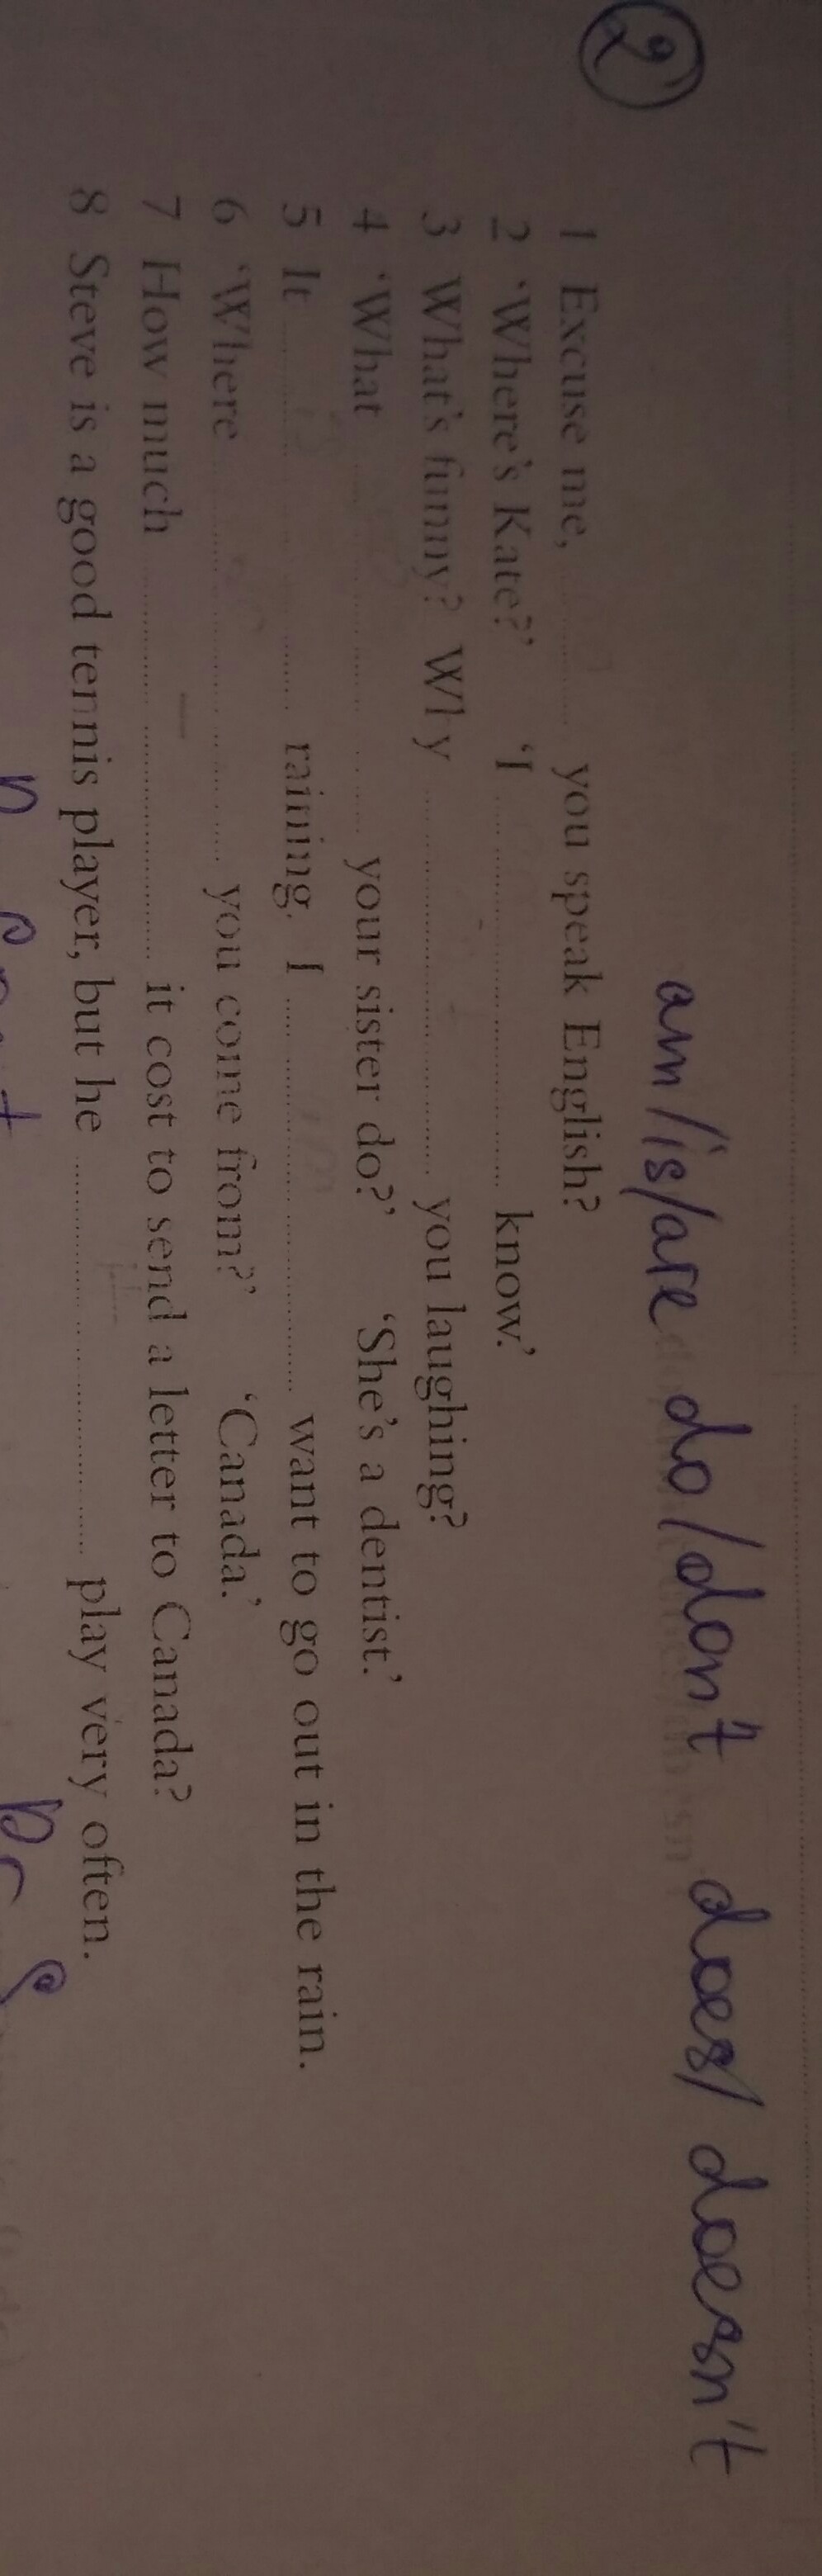 am/is/are do/don't does/doesn't
2
1 Excuse me, ........ you speak English?
2 'Where's Kate?' 'I ........ know.'
3 What's funny? Why ........ you laughing?
4 'What ........ your sister do?' 'She's a dentist.'
5 It ........ raining. I ........ want to go out in the rain.
6 'Where ........ you come from?' 'Canada.'
7 How much ........ it cost to send a letter to Canada?
8 Steve is a good tennis player, but he ........ play very often.